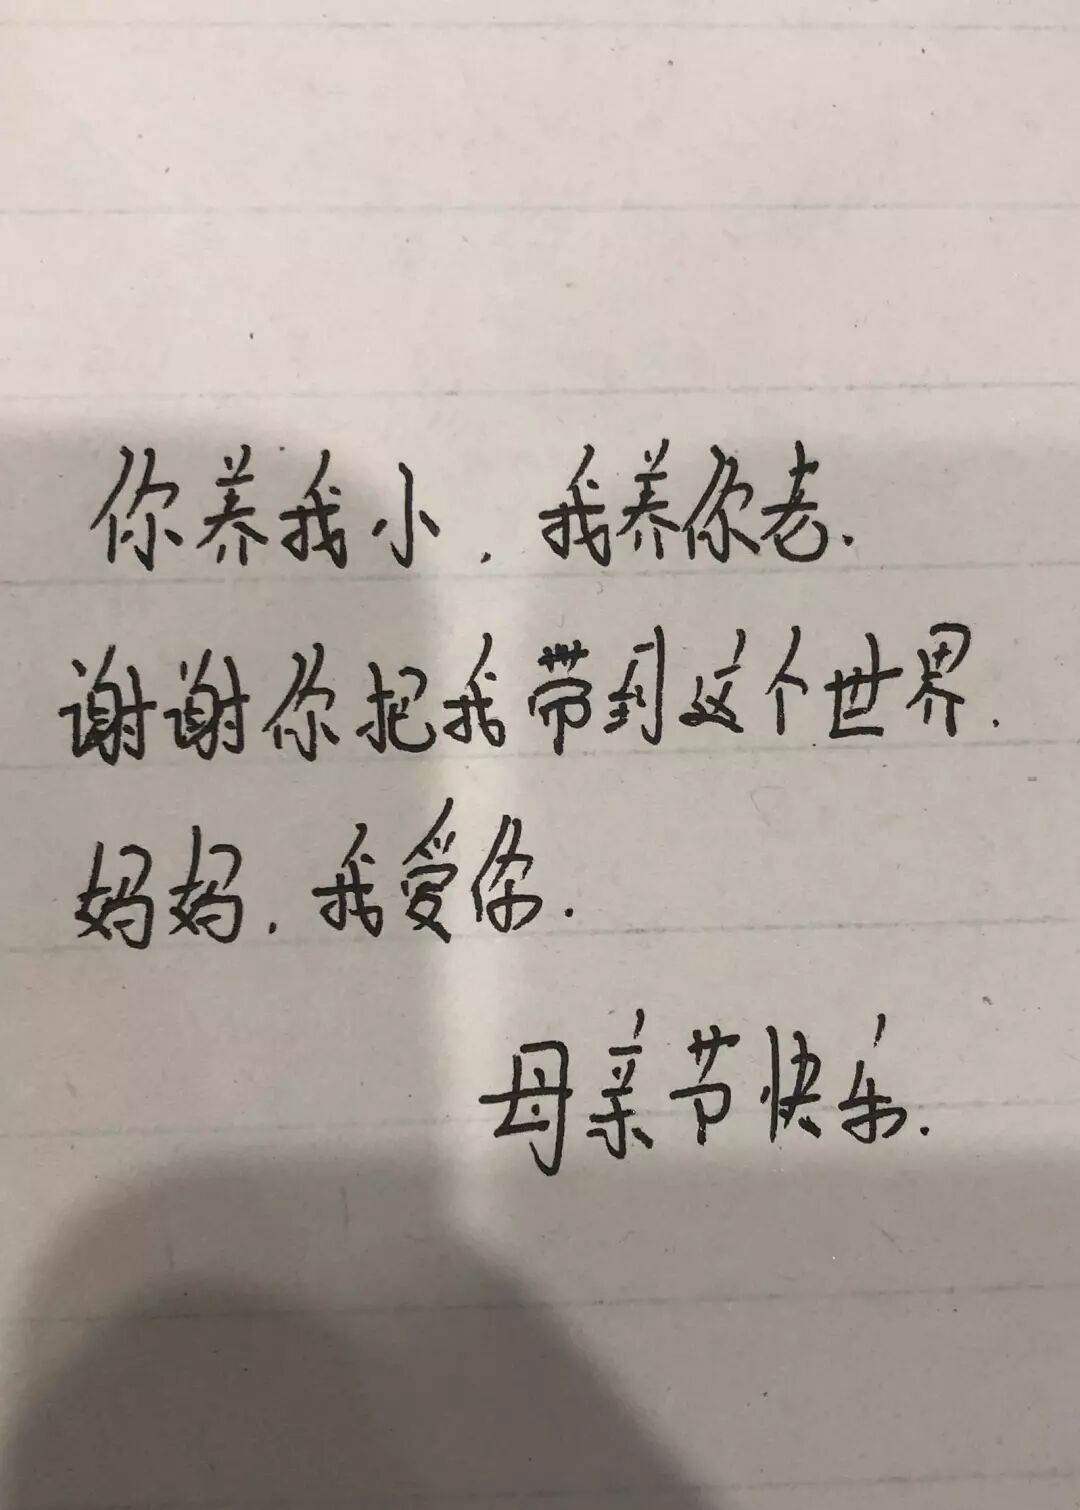 你养我小，我养你老.
谢谢你把我带到这个世界.
妈妈，我爱你.
母亲节快乐.